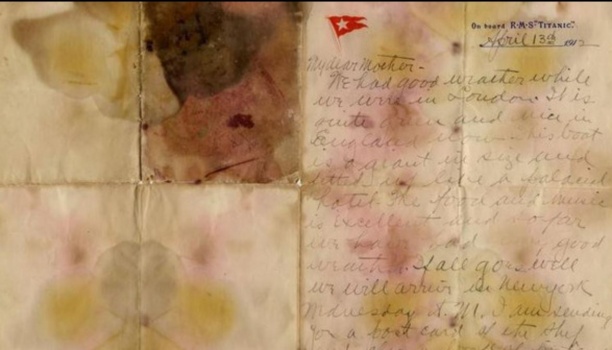 On board R.M.S. "TITANIC".
April 13th 1912
My dear Mother-
We had good weather while
we were in London. It is
quite green and nice in
England now. This boat
is a giant in size and
fitted up like a
hotel. The food and music
is excellent and so far
we have had very good
weather. If all goes well
we will arrive in New York
Wednesday A.M. I am sending
you a post card of the ship